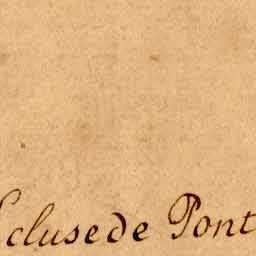 Eclusede Pont